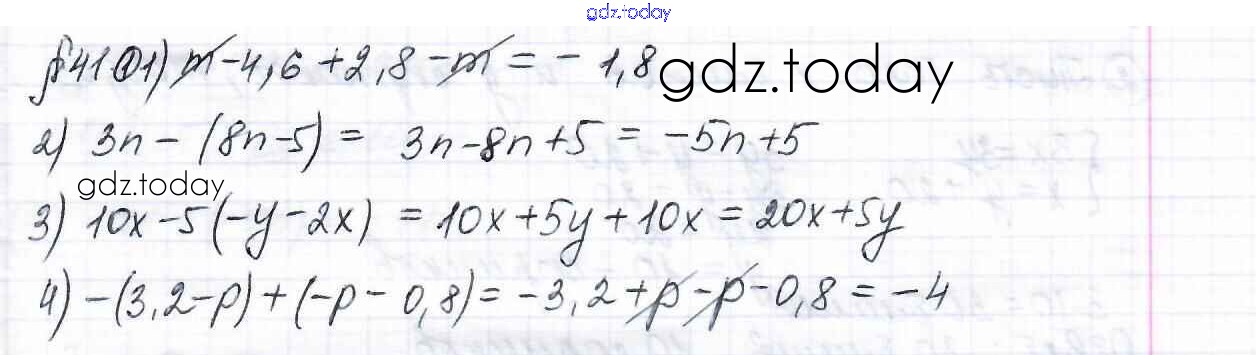 gdz.today
§41 ① 1) m - 4,6 + 2,8 - m = - 1,8
gdz.today
2) 3n - (8n-5) = 3n-8n+5 = -5n+5
gdz.today
3) 10x-5(-y-2x) = 10x+5y+10x = 20x+5y
4) -(3,2-p)+(-p-0,8) = -3,2+p-p-0,8 = -4